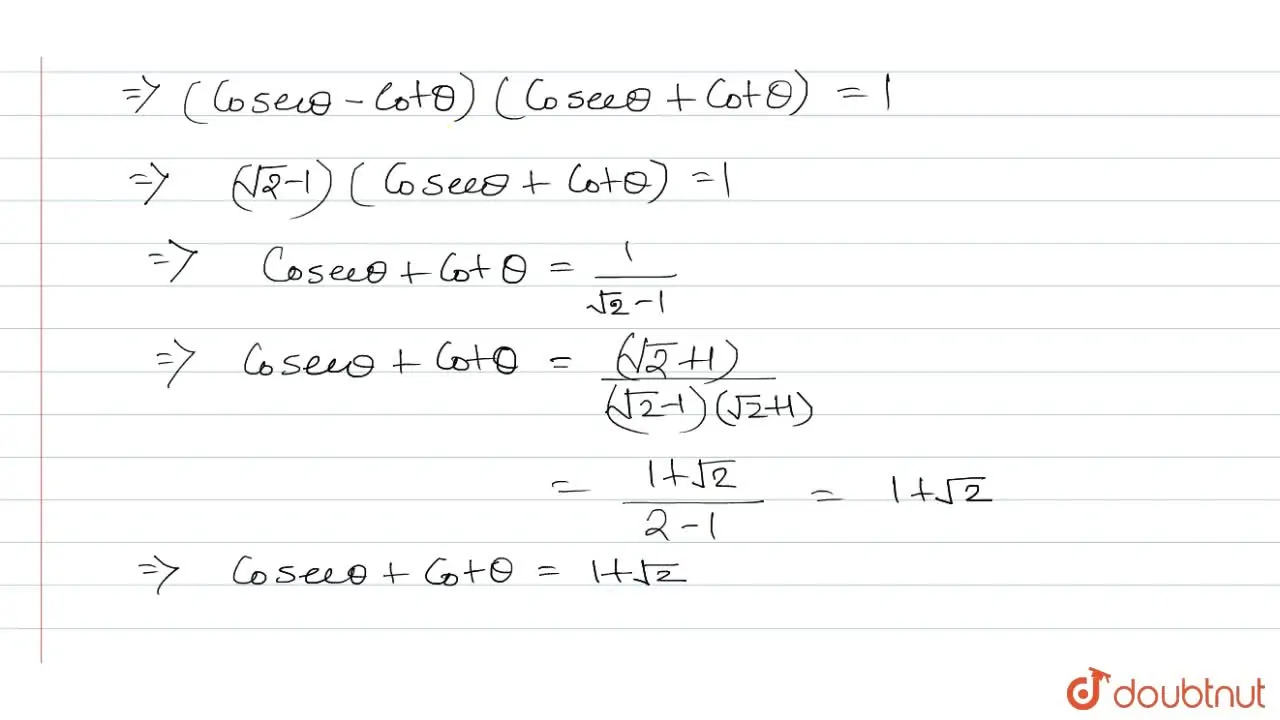 ⇒ (Cosecθ - Cotθ) (Cosecθ + Cotθ) = 1
⇒ (√2-1) (Cosecθ + Cotθ) = 1
⇒ Cosecθ + Cotθ = 1/(√2-1)
⇒ Cosecθ + Cotθ = (√2+1)/((√2-1)(√2+1))
= (1+√2)/(2-1) = 1+√2
⇒ Cosecθ + Cotθ = 1+√2
doubtnut